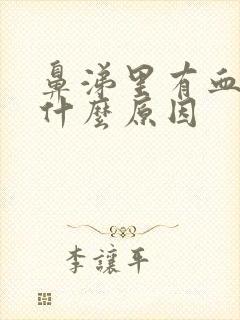 鼻涕里有血
什麼原因
李讓平